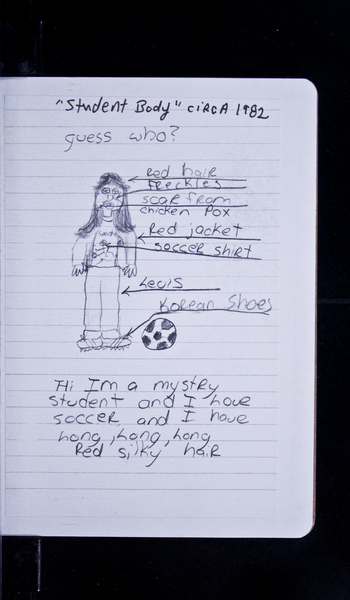 "Student Body" circa 1982
guess who?
Red hair
Freckles
scar from
chicken pox
Red jacket
soccer shirt
Levis
Korean Shoes
Hi Im a mystry
student and I love
soccer and I have
long, long, long
Red silky hair